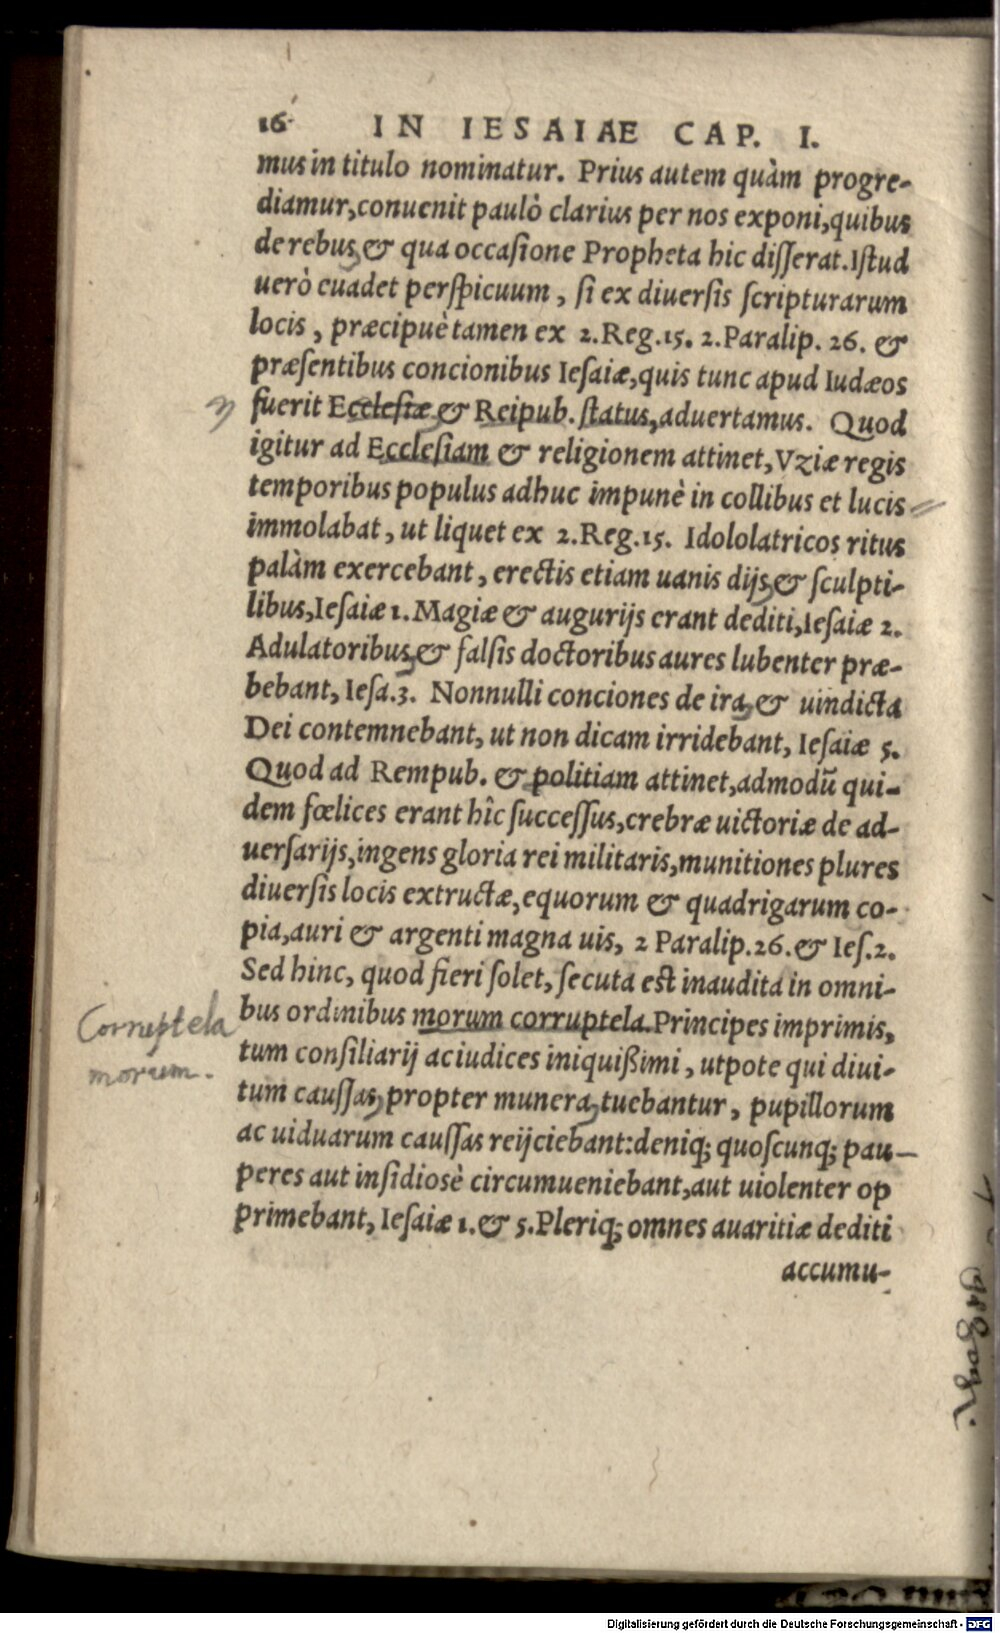 16 IN IESAIAE CAP. I.
mus in titulo nominatur. Prius autem quàm progre-
diamur, conuenit paulò clarius per nos exponi, quibus
de rebus, & qua occaſione Propheta hic diſſerat. Iſtud
uerò euadet perſpicuum, ſi ex diuerſis ſcripturarum
locis, præcipuè tamen ex 2. Reg. 15. 2. Paralip. 26. &
præſentibus concionibus Ieſaiæ, quis tunc apud Iudæos
fuerit Eccleſiæ & Reipub. ſtatus, aduertamus. Quod
igitur ad Eccleſiam & religionem attinet, Vziæ regis
temporibus populus adhuc impunè in collibus et lucis
immolabat, ut liquet ex 2. Reg. 15. Idololatricos ritus
palàm exercebant, erectis etiam uanis dijs, & ſculpti-
libus, Ieſaiæ 1. Magiæ & augurijs erant dediti, Ieſaiæ 2.
Adulatoribus, & falſis doctoribus aures lubenter præ-
bebant, Ieſa. 3. Nonnulli conciones de ira, & uindicta
Dei contemnebant, ut non dicam irridebant, Ieſaiæ 5.
Quod ad Rempub. & politiam attinet, admodū qui-
dem fœlices erant hîc ſucceſſus, crebræ uictoriæ de ad-
uerſarijs, ingens gloria rei militaris, munitiones plures
diuerſis locis extructæ, equorum & quadrigarum co-
pia, auri & argenti magna uis, 2 Paralip. 26. & Ieſ. 2.
Sed hinc, quod fieri ſolet, ſecuta eſt inaudita in omni-
bus ordinibus morum corruptela. Principes imprimis,
Corruptela
morum.
tum conſiliarij ac iudices iniquißimi, utpote qui diui-
tum cauſſas, propter munera, tuebantur, pupillorum
ac uiduarum cauſſas reijciebant: deniq; quoſcunq; pau-
peres aut inſidiosè circumueniebant, aut uiolenter op
primebant, Ieſaiæ 1. & 5. Pleriq; omnes auaritiæ dediti
accumu-
Digitalisierung gefördert durch die Deutsche Forschungsgemeinschaft - DFG